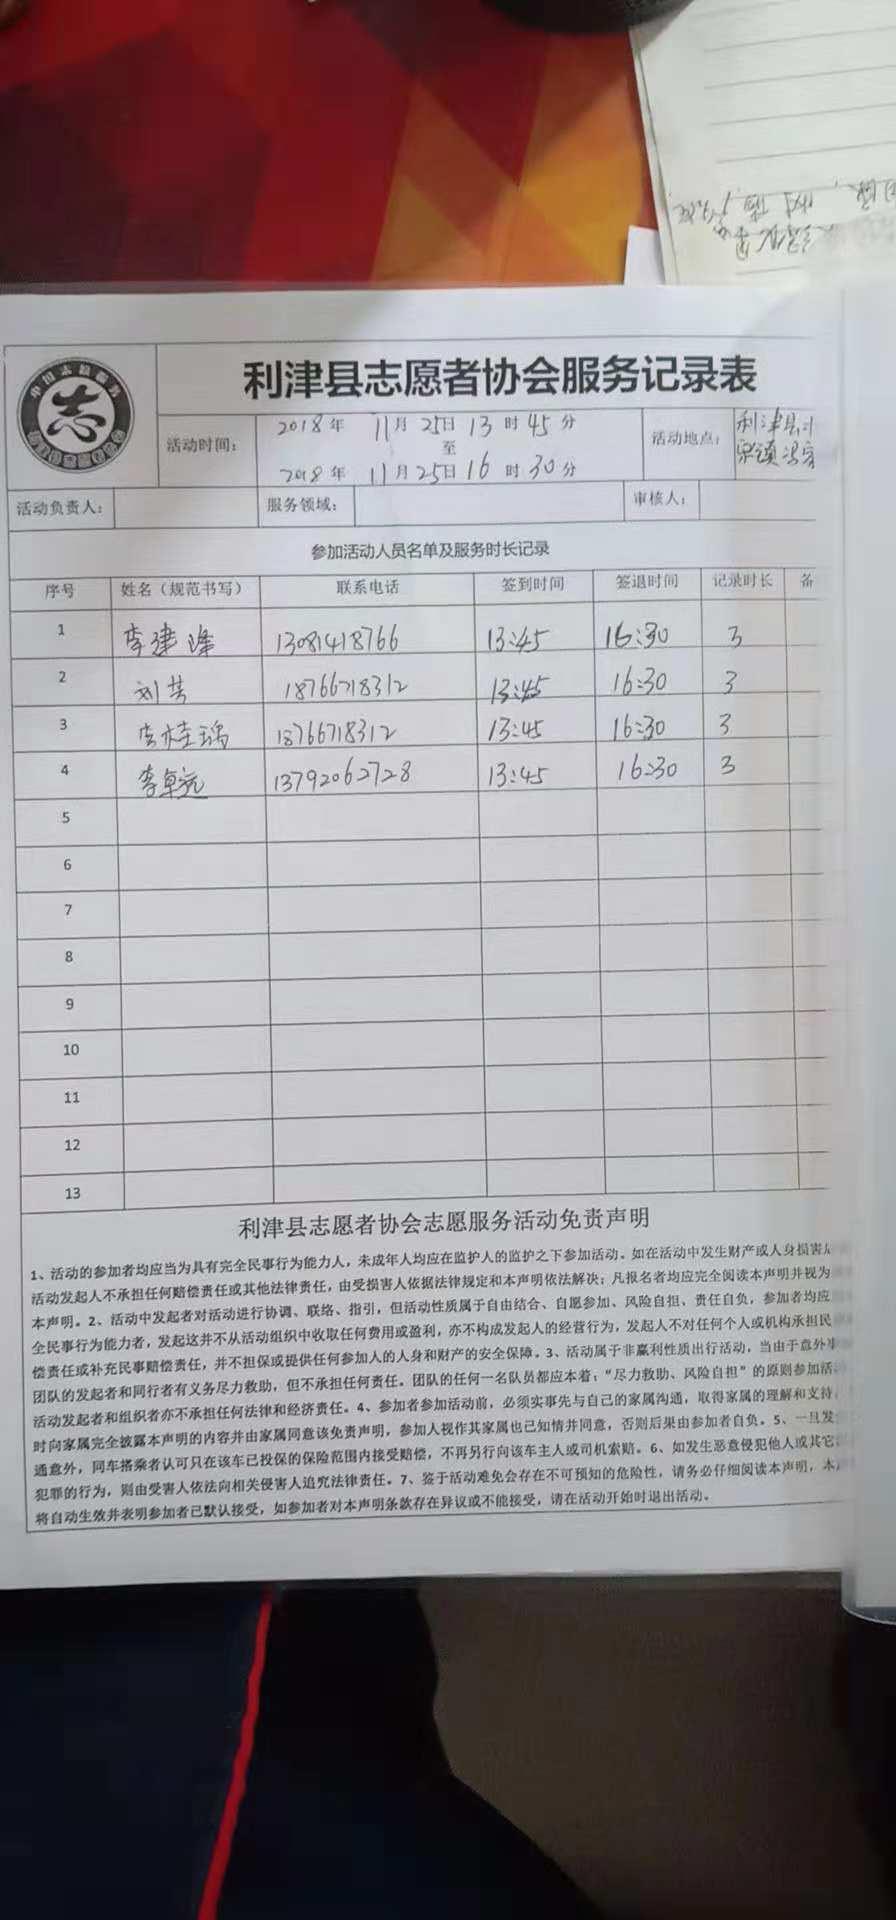 利津县志愿者协会服务记录表
中国志愿服务
志
活动时间: 2018年 11月25日13时45分
至
2018年 11月25日16时30分
活动地点: 利津县
活动负责人: 服务领域: 审核人:
参加活动人员名单及服务时长记录
序号 姓名（规范书写） 联系电话 签到时间 签退时间 记录时长 备
1 李建峰 13081418766 13:45 16:30 3
2 刘芳 18766718312 13:45 16:30 3
3 李桂瑞 18766718312 13:45 16:30 3
4 李卓远 13792062728 13:45 16:30 3
5
6
7
8
9
10
11
12
13
利津县志愿者协会志愿服务活动免责声明
1、活动的参加者均应当为具有完全民事行为能力人，未成年人均应在监护人的监护之下参加活动。如在活动中发生财产或人身损害后
活动发起人不承担任何赔偿责任或其他法律责任，由受损害人依据法律规定和本声明依法解决；凡报名者均应完全阅读本声明并视为
本声明。2、活动中发起者对活动进行协调、联络、指引，但活动性质属于自由结合、自愿参加、风险自担、责任自负，参加者均应
全民事行为能力者，发起这并不从活动组织中收取任何费用或盈利，亦不构成发起人的经营行为，发起人不对任何个人或机构承担民
偿责任或补充民事赔偿责任，并不担保或提供任何参加人的人身和财产的安全保障。3、活动属于非赢利性质出行活动，当由于意外事
团队的发起者和同行者有义务尽力救助，但不承担任何责任。团队的任何一名队员都应本着：“尽力救助、风险自担”的原则参加活
活动发起者和组织者亦不承担任何法律和经济责任。4、参加者参加活动前，必须实事先与自己的家属沟通，取得家属的理解和支持，
时向家属完全披露本声明的内容并由家属同意该免责声明，参加人视作其家属也已知情并同意，否则后果由参加者自负。5、一旦发
通意外，同车搭乘者认可只在该车已投保的保险范围内接受赔偿，不再另行向该车主人或司机索赔。6、如发生恶意侵犯他人或其它
犯罪的行为，则由受害人依法向相关侵害人追究法律责任。7、鉴于活动难免会存在不可预知的危险性，请务必仔细阅读本声明，本
将自动生效并表明参加者已默认接受，如参加者对本声明条款存在异议或不能接受，请在活动开始时退出活动。